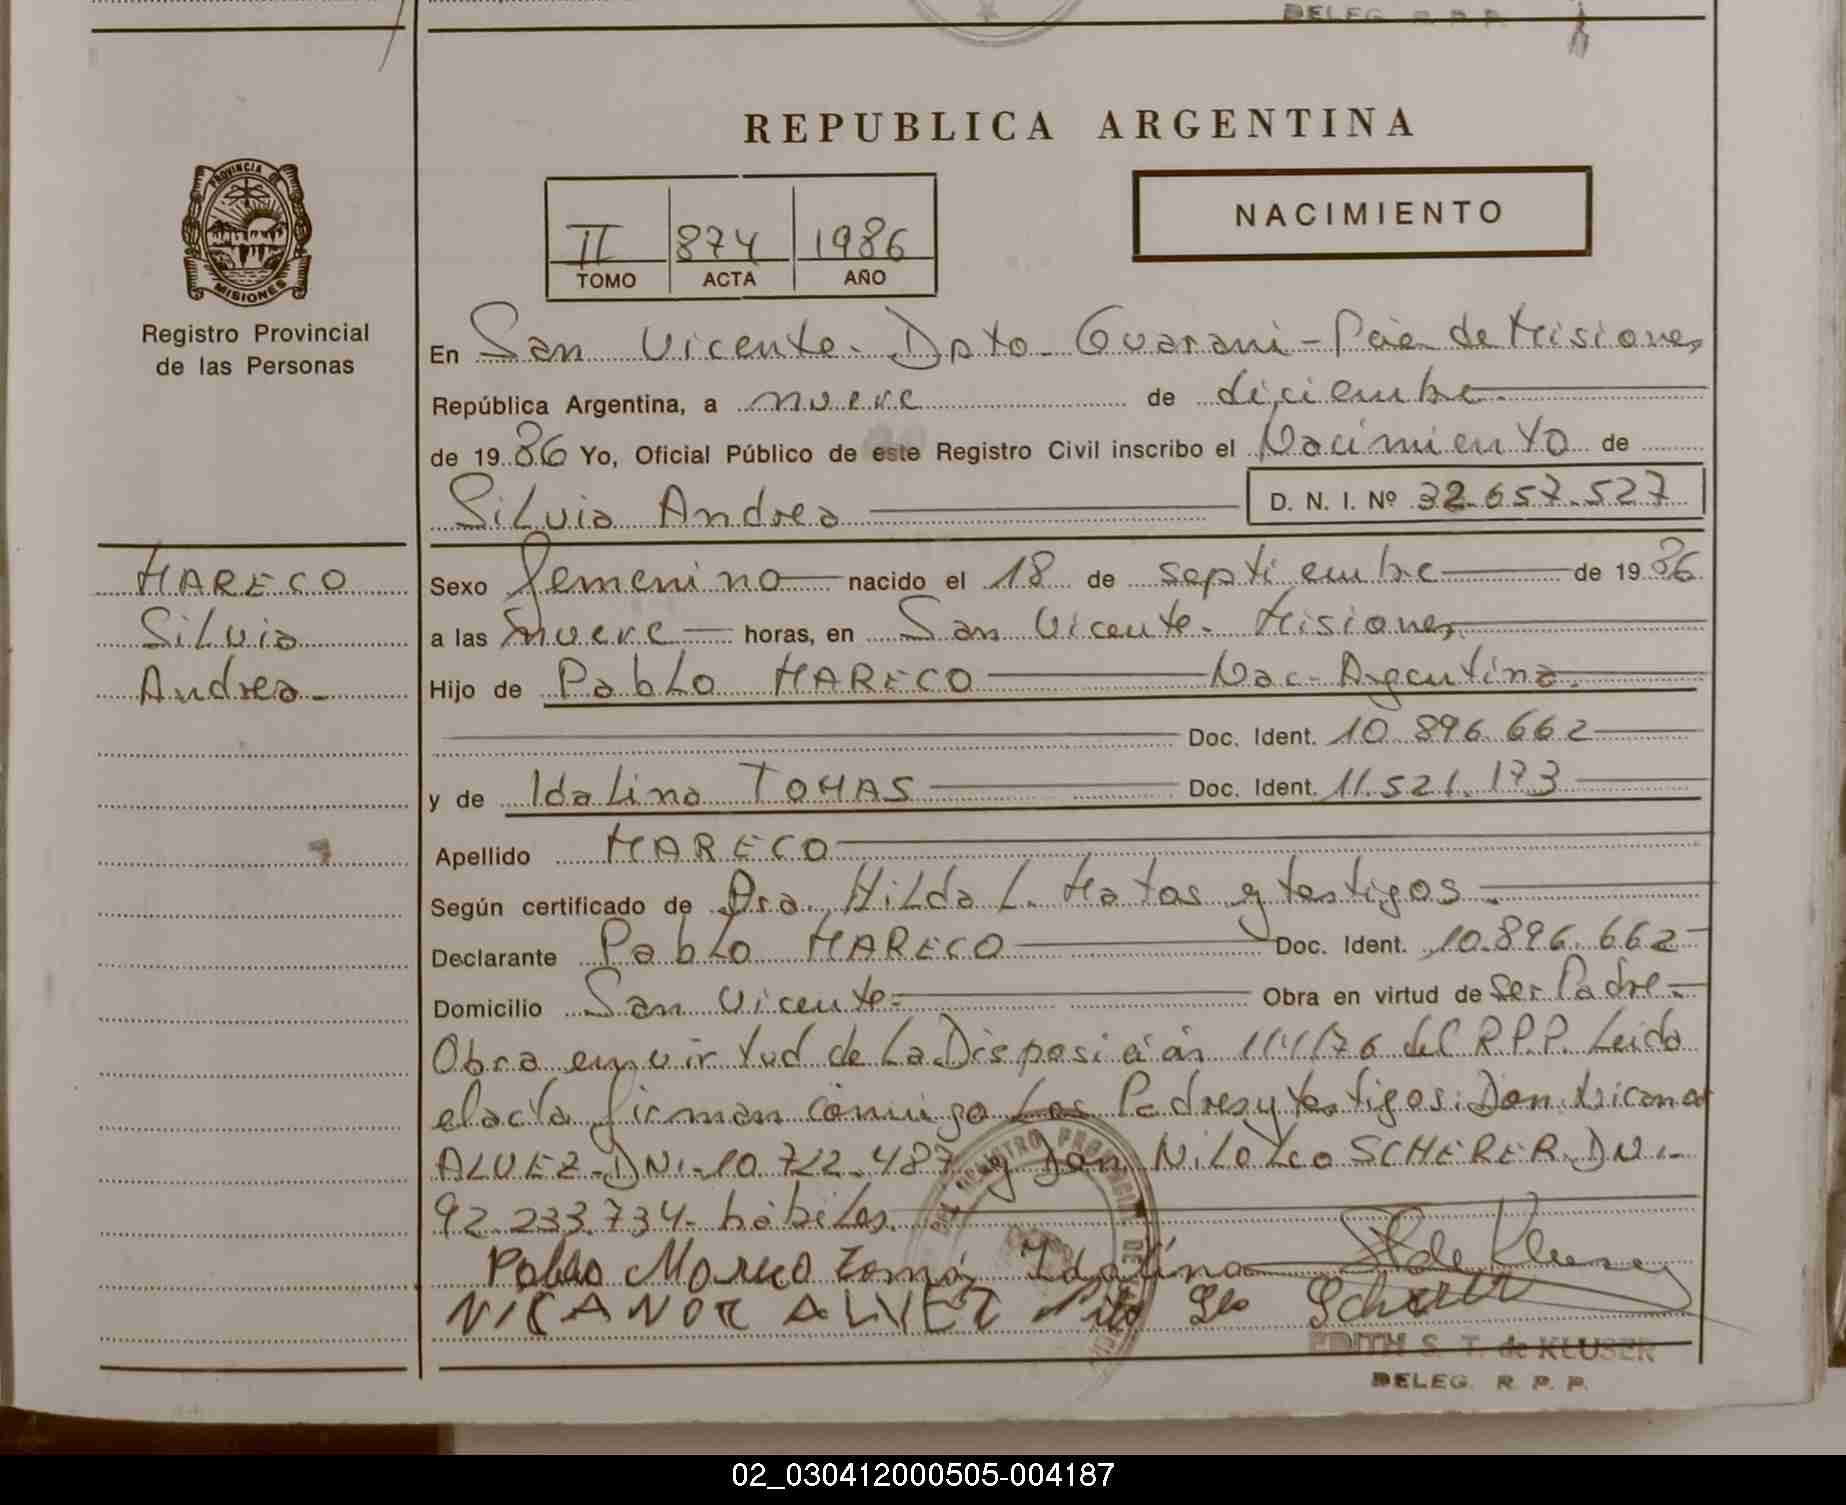 DELEG. R. P. P.
REPUBLICA ARGENTINA
PROVINCIA DE
MISIONES
Registro Provincial
de las Personas
II 874 1986
TOMO ACTA AÑO
NACIMIENTO
En San Vicente - Dpto Guarani - Pcia de Misiones
República Argentina, a nueve de diciembre
de 1986 Yo, Oficial Público de este Registro Civil inscribo el Nacimiento de
Silvia Andrea D. N. I. Nº 32.657.527
MARECO
Silvia
Andrea
Sexo femenino nacido el 18 de septiembre de 1986
a las nueve horas, en San Vicente - Misiones
Hijo de Pablo MARECO Nac. Argentina.
Doc. Ident. 10.896.662
y de Idalina TOMAS Doc. Ident. 11.521.173
Apellido MARECO
Según certificado de Dra. Hilda L. Matos y testigos.
Declarante Pablo MARECO Doc. Ident. 10.896.662
Domicilio San Vicente Obra en virtud de ser Padre
Obra en virtud de la Disposición 111/76 del R.P.P. Leida
el acta firman conmigo los Padres y testigos: Don Nicanor
ALVEZ - DNI - 10.722.487 y Don Niloleo SCHERER. DNI -
92.233.734 - hábiles.
Pablo Mareco Tomás Idalina
NICANOR ALVEZ
EDITH S. T. de KLUSER
DELEG. R. P. P.
02_030412000505-004187